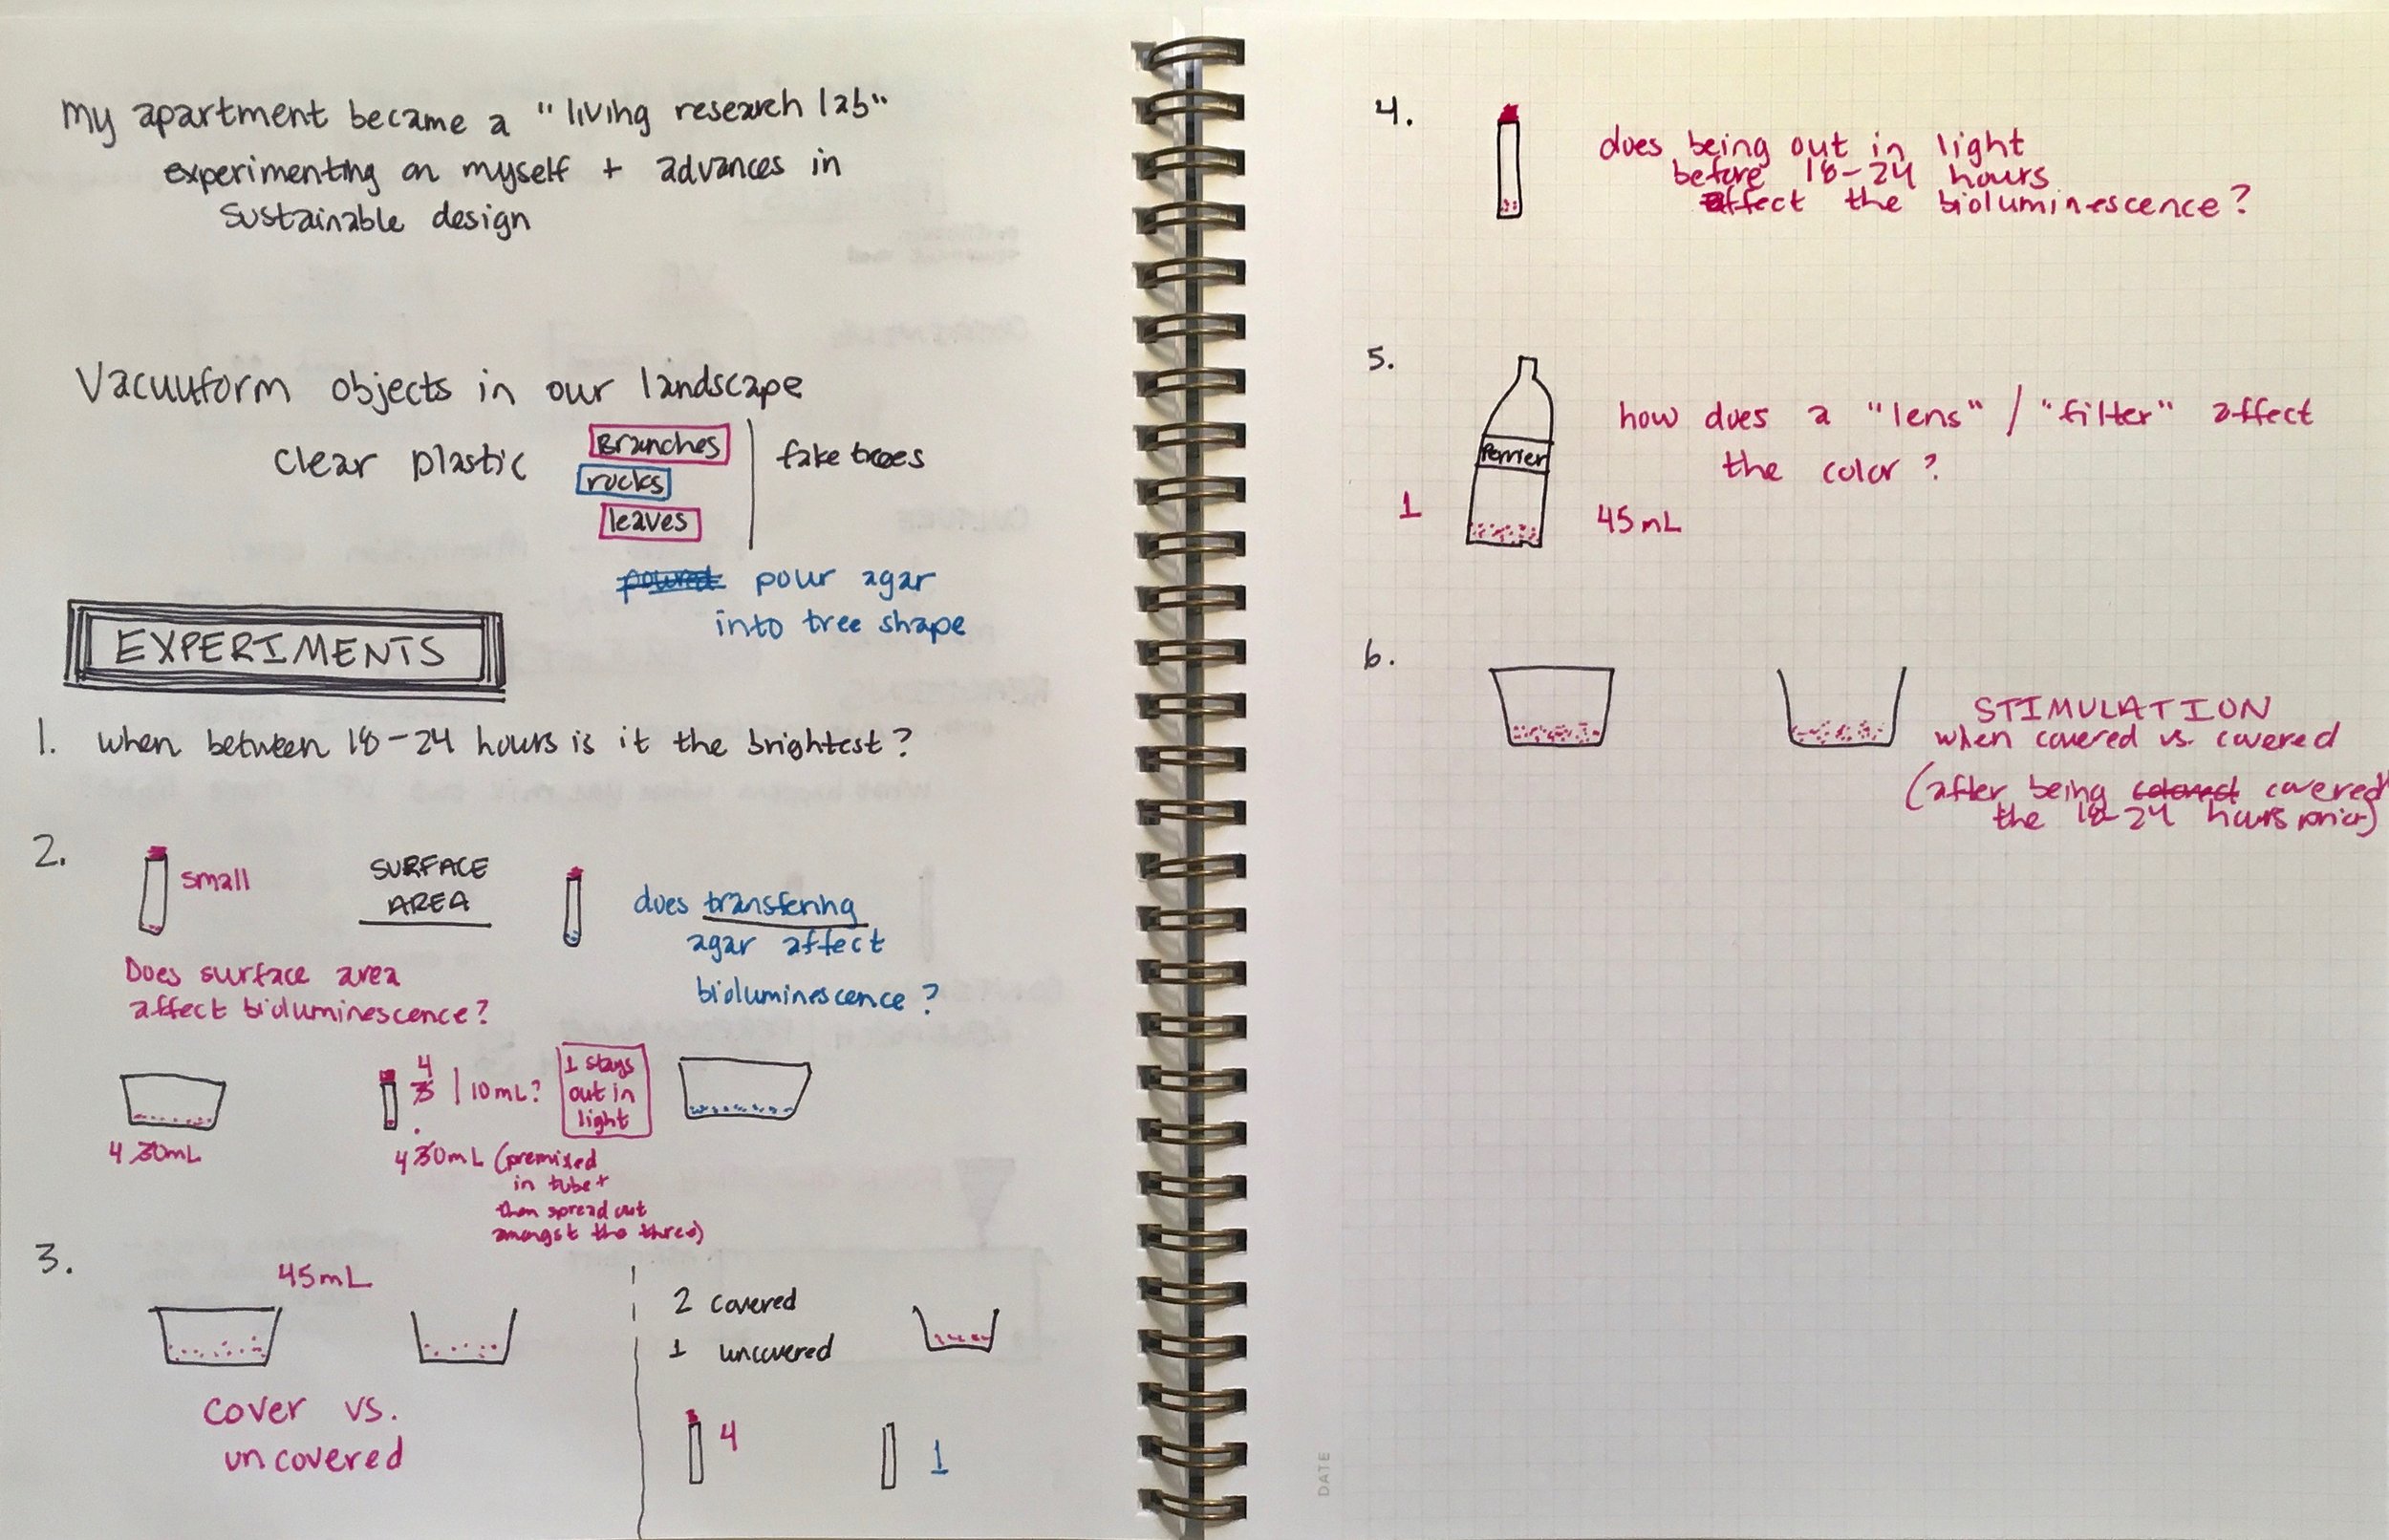 My apartment became a "living research lab"
experimenting on myself + advances in
sustainable design
Vacuuform objects in our landscape
clear plastic
Branches
rocks
leaves
fake trees
poured pour agar
into tree shape
EXPERIMENTS
1. when between 18-24 hours is it the brightest?
2.
small
SURFACE
AREA
does transfering
agar affect
bioluminescence?
Does surface area
affect bioluminescence?
4 30mL
4
3 | 10mL?
1 stays
out in
light
4 30mL (premixed
in tube +
then spread out
amongst the three)
3.
45mL
cover vs.
uncovered
2 covered
1 uncovered
4
1
4.
does being out in light
before 18-24 hours
affect the bioluminescence?
5.
Perrier
how does a "lens" / "filter" affect
the color?
1
45mL
6.
STIMULATION
when covered vs. covered
(after being colored covered
the 18-24 hours prior)
DATE